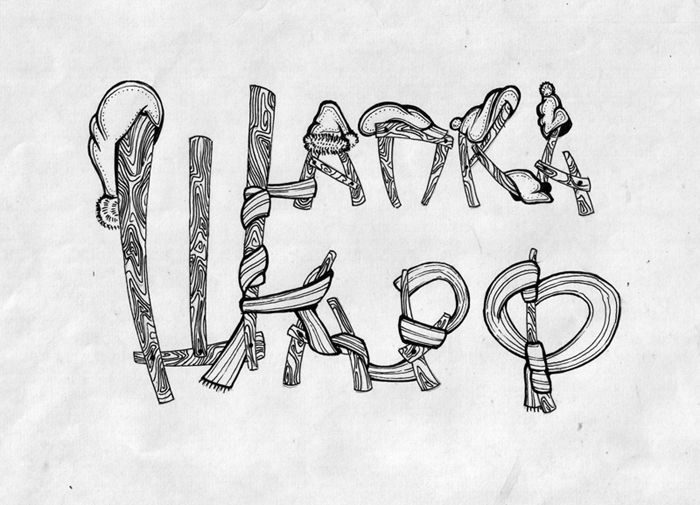 ШАПКА
ШАРФ